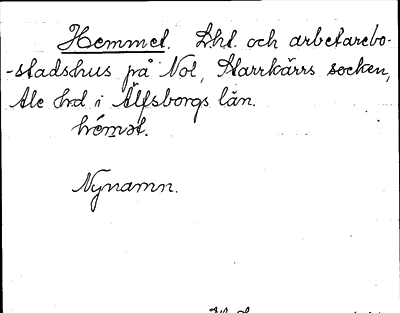 Hemmet. Lht. och arbetarebo-
-stadshus på Nol, Starrkärrs socken,
Ale hrd i Älfsborgs län.
hémət.
Nynamn.